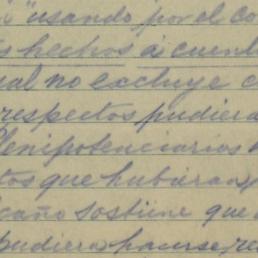 " usando por el co
hechos á cuent
ual no excluye c
respectos pudiera
Plenipotenciarios
tos que hubieran
cano sostiene que
pudiera hacerse, re